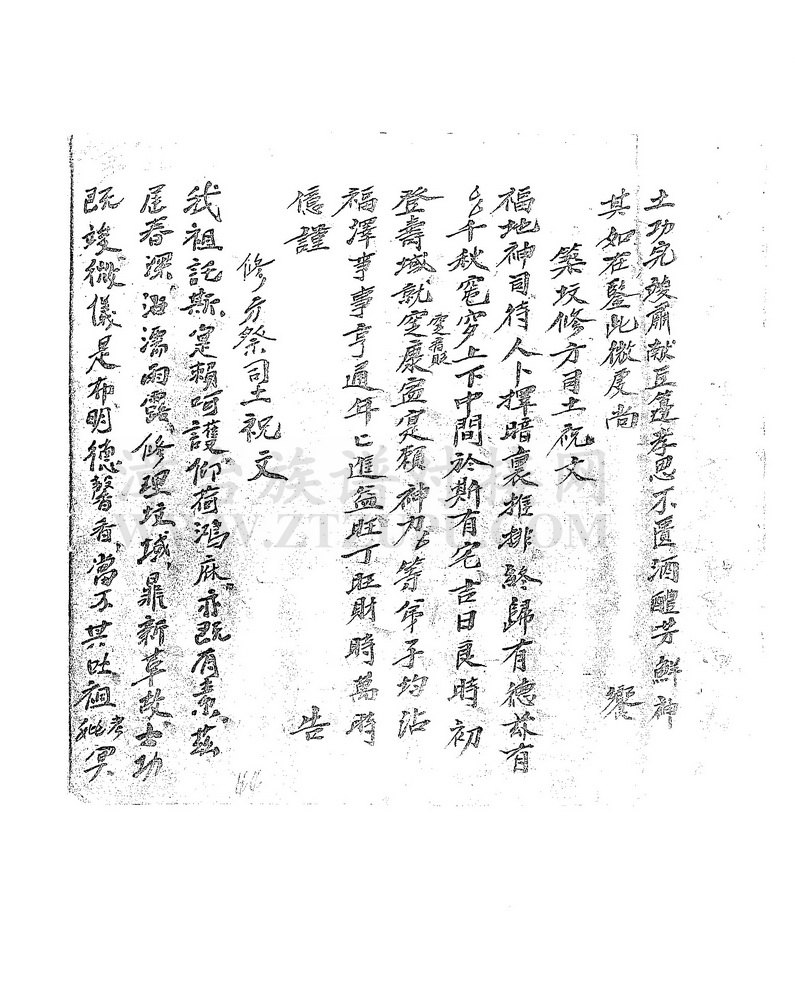 土功完竣肅献豆籩孝思不匱酒醴芳鮮神
其如在鑒此微虔尚 饗
築坟修方司土祝文
福地神司待人卜擇暗裏推排終歸有德茲有
千秋窀穸上下中間於斯有宅吉日良時初
登壽域就空康寧寔賴神力等弟子均沾
福澤事事亨通年匕進益旺丁旺財時萬時
億謹 告
修方祭司土祝文
我祖託斯寔賴呵護仰荷鴻庥亦既有素茲
届春深沾濡雨露修理坟域鼎新革故土功
既竣微儀是布明德馨香當不其吐祖考
妣冥
漳台族谱对接网
WWW.ZTZUPU.COM